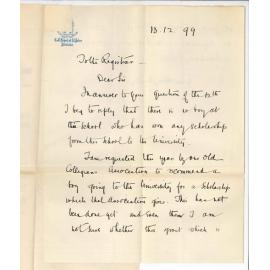 13.12.99
To the Registrar
Dear Sir
In answer to your question of the 12th
I beg to reply that there is no boy at
this school who has won any scholarship
from this School to the University.
I am requested this year by our Old
Collegians Association to recommend a
boy going to the University for a Scholarship
which that Association gives. This has not
been done yet and even then I am
not sure whether this grant which is